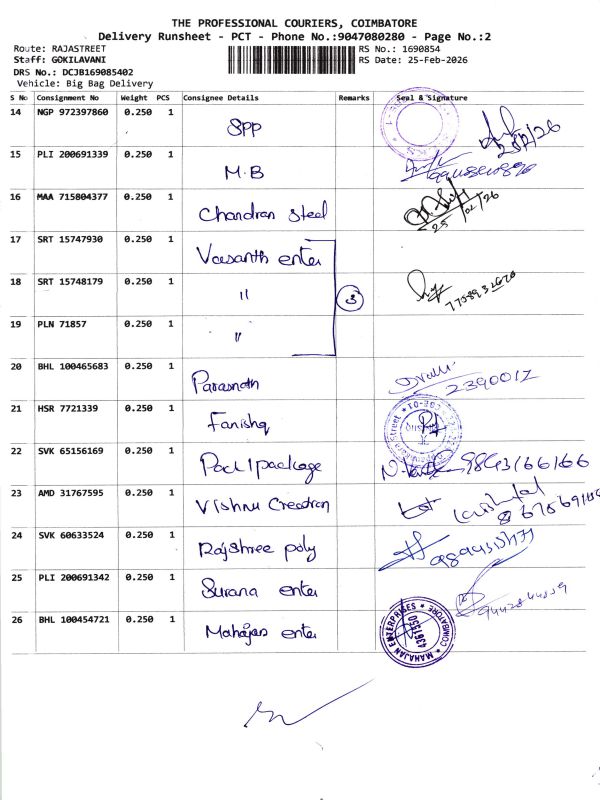 THE PROFESSIONAL COURIERS, COIMBATORE
Delivery Runsheet - PCT - Phone No.:9047080280 - Page No.:2
Route: RAJASTREET
Staff: GOKILAVANI
DRS No.: DCJB169085402
Vehicle: Big Bag Delivery
RS No.: 1690854
RS Date: 25-Feb-2026
S No Consignment No Weight PCS Consignee Details Remarks Seal & Signature
14 NGP 972397860 0.250 1 SPP
15 PLI 200691339 0.250 1 M.B
16 MAA 715804377 0.250 1 Chandran Steel 25/02/26
17 SRT 15747930 0.250 1 Vasanth enter
18 SRT 15748179 0.250 1 " 3
19 PLN 71857 0.250 1 "
20 BHL 100465683 0.250 1 Parasnath 2390012
21 HSR 7721339 0.250 1 Fanishq
22 SVK 65156169 0.250 1 Pack 1 package 9843166166
23 AMD 31767595 0.250 1 Vishnu Creation
24 SVK 60633524 0.250 1 Rajshree poly
25 PLI 200691342 0.250 1 Surana enter
26 BHL 100454721 0.250 1 Mahajan enter MAHAJAN ENTERPRISES COIMBATORE